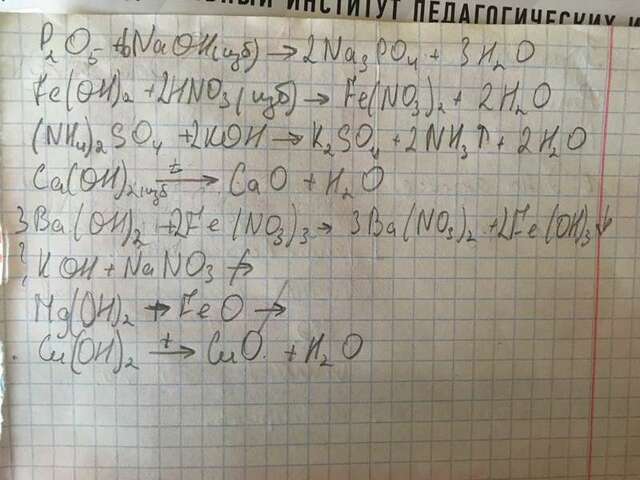 ЫЙ ИНСТИТУТ ПЕДАГОГИЧЕСКИХ И
P₂O₅ + 6NaOH(изб) → 2Na₃PO₄ + 3H₂O
Fe(OH)₂ + 2HNO₃(изб) → Fe(NO₃)₂ + 2H₂O
(NH₄)₂SO₄ + 2KOH → K₂SO₄ + 2NH₃↑ + 2H₂O
Ca(OH)₂ изб t→ CaO + H₂O
3Ba(OH)₂ + 2Fe(NO₃)₃ → 3Ba(NO₃)₂ + 2Fe(OH)₃↓
KOH + NaNO₃ ↛
Mg(OH)₂ + FeO ↛
Cu(OH)₂ t→ CuO + H₂O